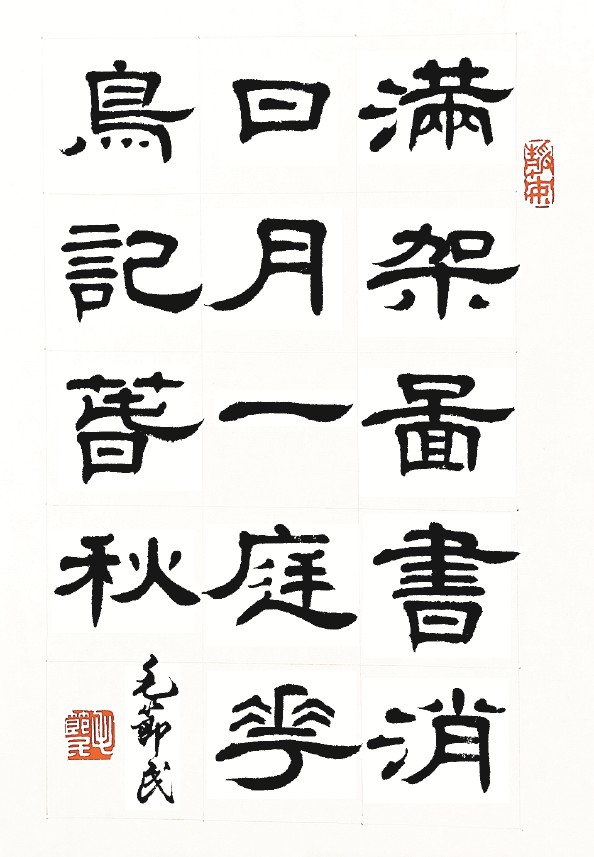 滿架圖書消
日月一庭花
鳥記萅秋
毛節民